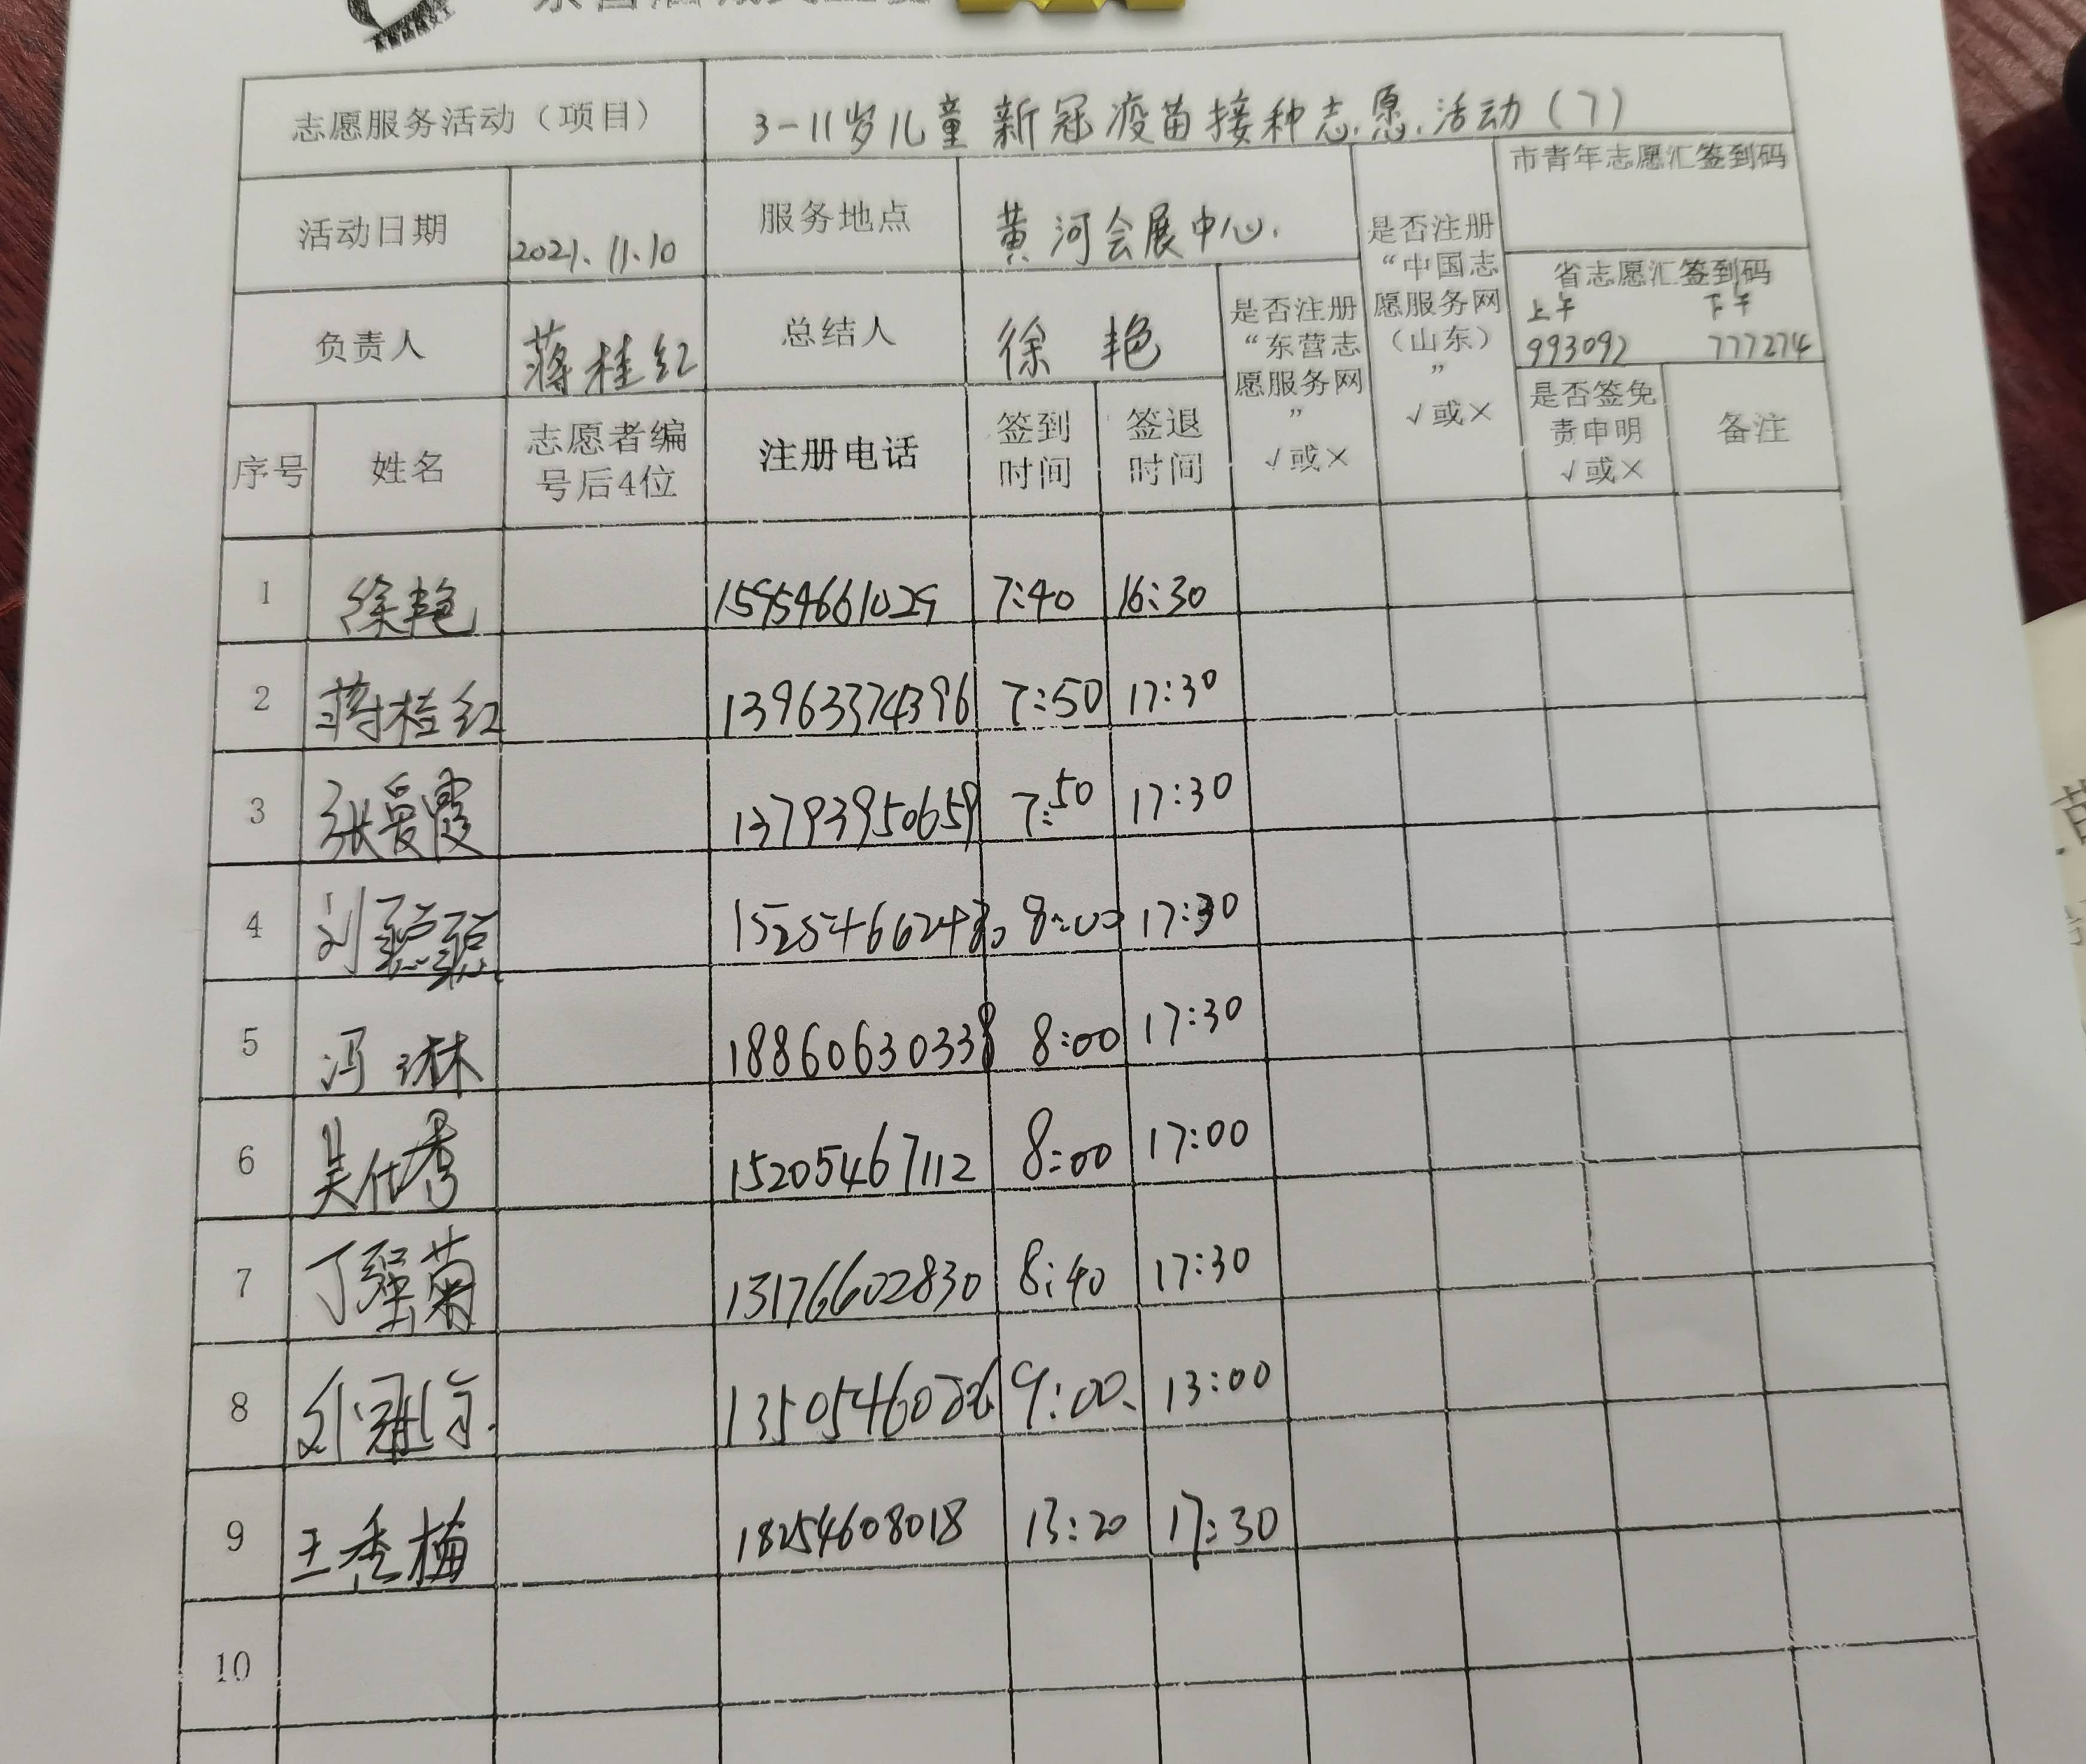 志愿服务活动（项目） 3-11岁儿童新冠疫苗接种志愿活动(7)
市青年志愿汇签到码
活动日期 2021.11.10 服务地点 黄河会展中心.
是否注册“中国志愿服务网（山东）” √或×
省志愿汇签到码
上午 下午
993092 777274
负责人 蒋桂红 总结人 徐艳
是否注册“东营志愿服务网” √或×
序号 姓名 志愿者编号后4位 注册电话 签到时间 签退时间 是否签免责申明 √或× 备注
1 徐艳 15954661029 7:40 16:30
2 蒋桂红 13963374396 7:50 17:30
3 张爱霞 13793950659 7:50 17:30
4 刘 8:00 17:30
5 冯琳 18860630338 8:00 17:30
6 吴仕秀 15205467112 8:00 17:00
7 丁强菊 13176602830 8:40 17:30
8 9:00 13:00
9 王秀梅 18254608018 13:20 17:30
10